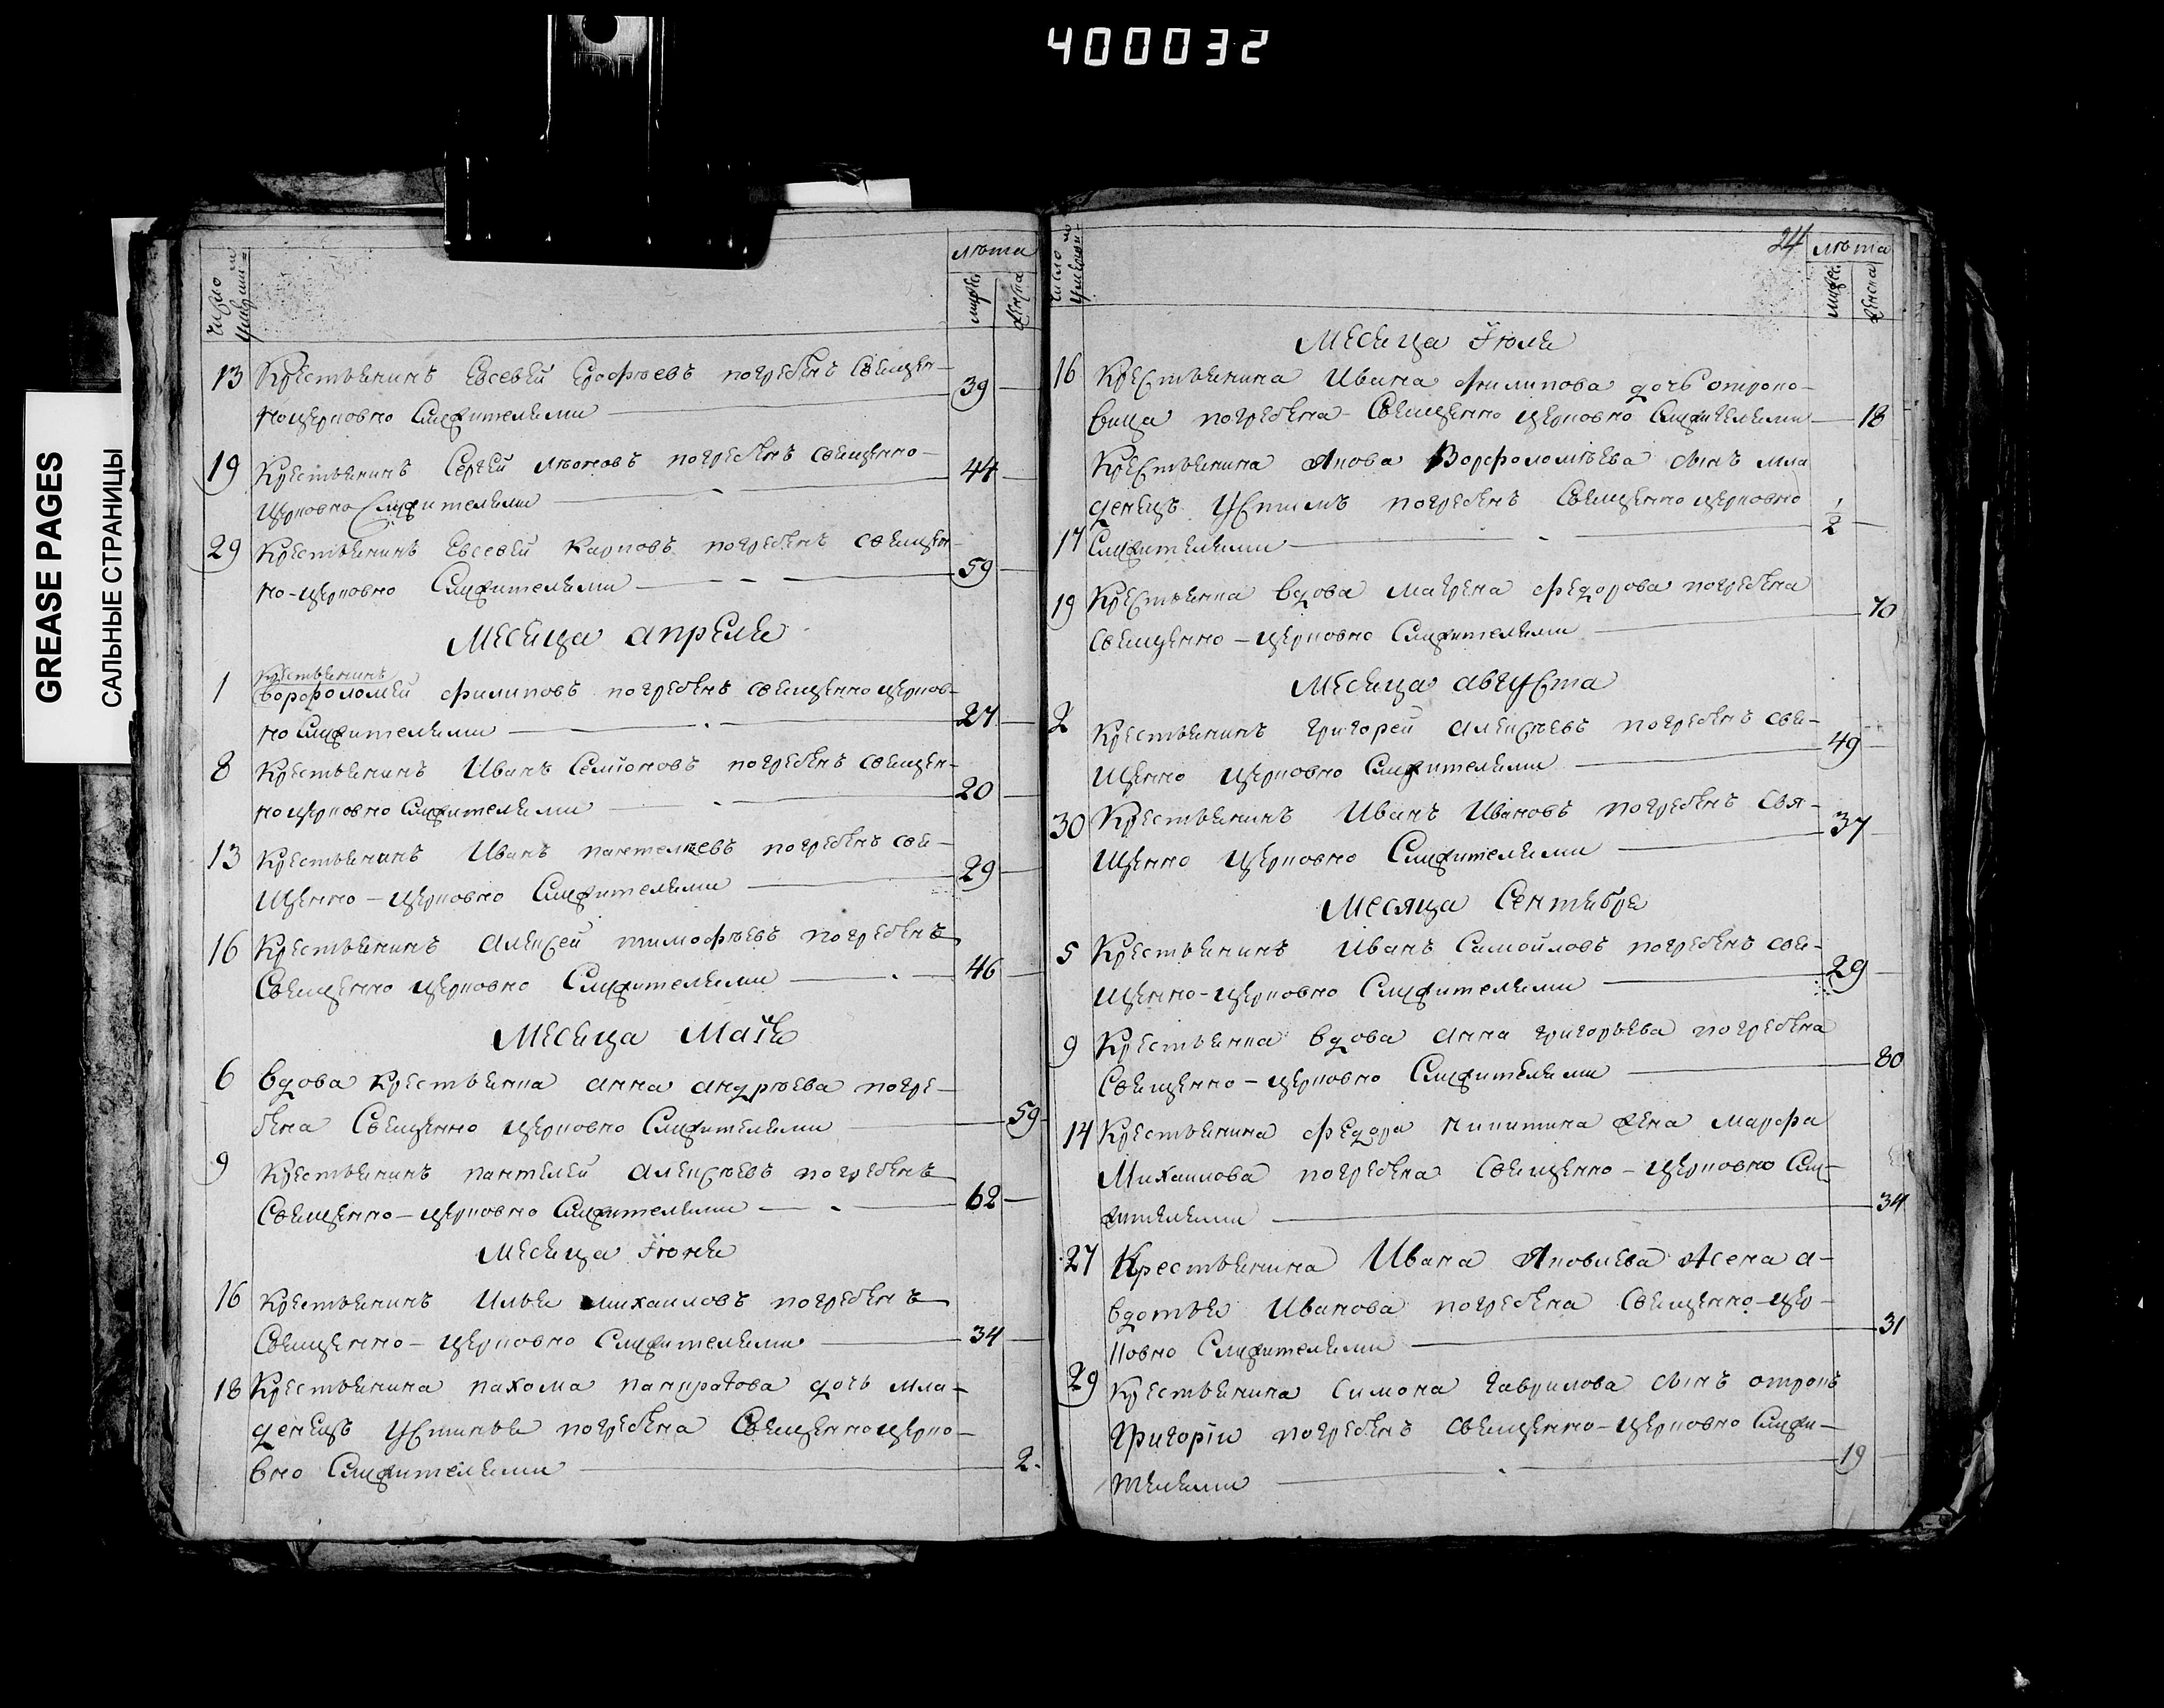 400032
GREASE PAGES
САЛЬНЫЕ СТРАНИЦЫ
число
умерши=
лѣта
мужес
женска
13 Крестьянинъ Евсевей Ерофѣевъ погребенъ Священ-
ноцерковно Служителями — 39 —
19 Крестьянинъ Сергей Лѣоновъ погребенъ священно-
церковно Служителями — 44 —
29 Крестьянинъ Евсевей Карповъ погребенъ священ-
но-церковно Служителями — 59 —
Месяца апреля
крестьянинъ
1 Ворфоломей филиповъ погребенъ священно церков-
но Служителями — 27 —
8 Крестьянинъ Иванъ Семионовъ погребенъ священ-
ноцерковно Служителями — 20 —
13 Крестьянинъ Иванъ пантелѣевъ погребенъ свя-
щенно-церковно Служителями — 29 —
16 Крестьянинъ Алексей тимофѣевъ погребенъ
Священно церковно Служителями — 46 —
Месяца Маія
6 вдова Крестьянка анна андрѣева погре-
бена Священно церковно Служителями — 59
9 Крестьянинъ пантелей Алексѣевъ погребенъ
Священно-церковно Служителями — 62 —
Месяца Іюня
16 Крестьянинъ Илья михаиловъ погребенъ
Священно-церковно Служителями — 34 —
18 Крестьянина пахома панкратова дочь мла-
денецъ Устинья погребена Священноцерко-
вно Служителями — 2.
24
число
умерши-
лѣта
мужес
женска
Месяца Іюля
16 Крестьянина Ивана Филипова дочь отроко-
вица погребена Священно церковно Служителями — 18
Крестьянина Якова Ворфоломѣева сынъ мла
денецъ Устимъ погребенъ Священно церковно
17 Служителями — 1/2 —
19 Крестьянка вдова матрена федорова погребена
священно-церковно Служителями — 70
Месяца августа
2 Крестьянинъ григорей Алексѣевъ погребенъ свя-
щенно церковно Служителями — 49 —
30 Крестьянинъ Иванъ Ивановъ погребенъ Свя-
щенно церковно Служителями — 37 —
Месяца Сентября
5 Крестьянинъ Иванъ Самойловъ погребенъ свя-
щенно-церковно Служителями — 29 —
9 Крестьянка вдова анна григорьева погребена
Священно-церковно Служителями — 80
14 Крестьянина федора никитина жена марфа
Михаилова погребена Священно-церковно Слу-
жителями — 34
27 Крестьянина Ивана Яковлева жена а-
вдотья Иванова погребена Священно-цер-
ковно Служителями — 31
29 Крестьянина Симона гаврилова сынъ отрокъ
григоріи погребенъ священно-церковно Служи-
телями — 19